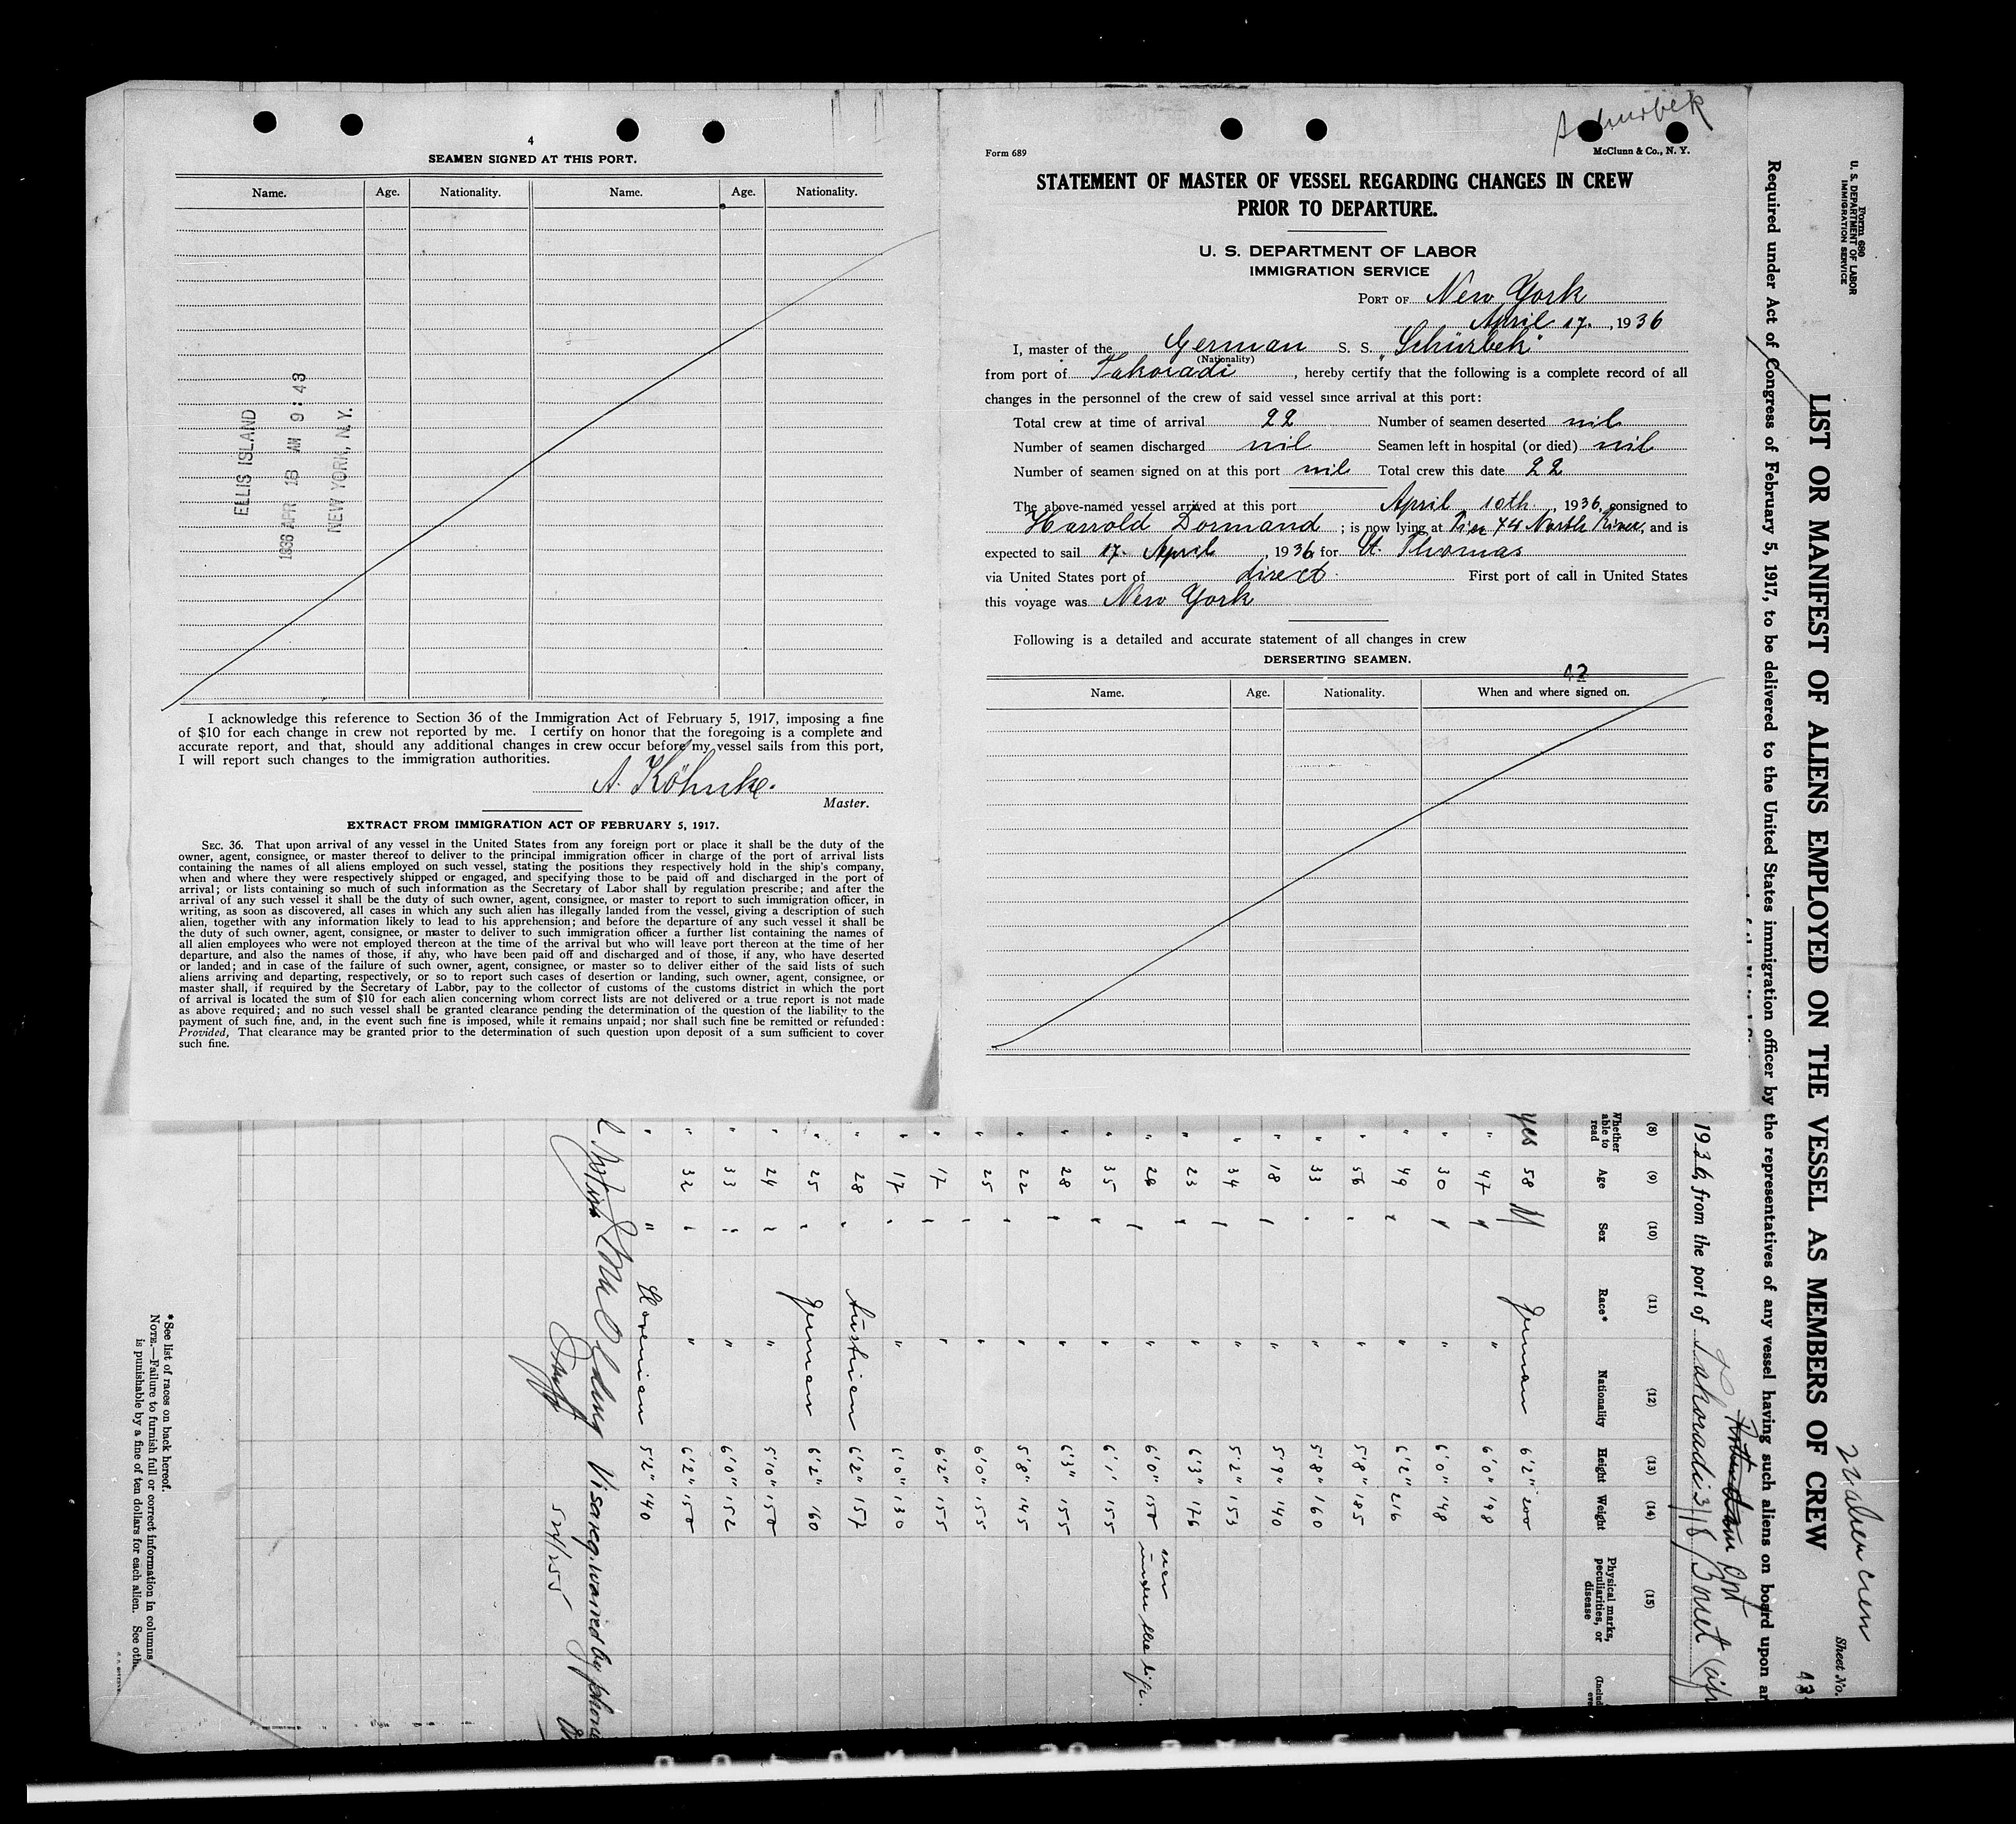 4
SEAMEN SIGNED AT THIS PORT.
Name. Age. Nationality. Name. Age. Nationality.
ELLIS ISLAND
1936 APR 18 AM 9:43
NEW YORK, N.Y.
I acknowledge this reference to Section 36 of the Immigration Act of February 5, 1917, imposing a fine
of $10 for each change in crew not reported by me. I certify on honor that the foregoing is a complete and
accurate report, and that, should any additional changes in crew occur before my vessel sails from this port,
I will report such changes to the immigration authorities.
A. Köhnke.
Master.
EXTRACT FROM IMMIGRATION ACT OF FEBRUARY 5, 1917.
SEC. 36. That upon arrival of any vessel in the United States from any foreign port or place it shall be the duty of the
owner, agent, consignee, or master thereof to deliver to the principal immigration officer in charge of the port of arrival lists
containing the names of all aliens employed on such vessel, stating the positions they respectively hold in the ship's company,
when and where they were respectively shipped or engaged, and specifying those to be paid off and discharged in the port of
arrival; or lists containing so much of such information as the Secretary of Labor shall by regulation prescribe; and after the
arrival of any such vessel it shall be the duty of such owner, agent, consignee, or master to report to such immigration officer, in
writing, as soon as discovered, all cases in which any such alien has illegally landed from the vessel, giving a description of such
alien, together with any information likely to lead to his apprehension; and before the departure of any such vessel it shall be
the duty of such owner, agent, consignee, or master to deliver to such immigration officer a further list containing the names of
all alien employees who were not employed thereon at the time of the arrival but who will leave port thereon at the time of her
departure, and also the names of those, if any, who have been paid off and discharged and of those, if any, who have deserted
or landed; and in case of the failure of such owner, agent, consignee, or master so to deliver either of the said lists of such
aliens arriving and departing, respectively, or so to report such cases of desertion or landing, such owner, agent, consignee, or
master shall, if required by the Secretary of Labor, pay to the collector of customs of the customs district in which the port
of arrival is located the sum of $10 for each alien concerning whom correct lists are not delivered or a true report is not made
as above required; and no such vessel shall be granted clearance pending the determination of the question of the liability to the
payment of such fine, and, in the event such fine is imposed, while it remains unpaid; nor shall such fine be remitted or refunded:
Provided, That clearance may be granted prior to the determination of such question upon deposit of a sum sufficient to cover
such fine.
Form 689
McClunn & Co., N. Y.
STATEMENT OF MASTER OF VESSEL REGARDING CHANGES IN CREW
PRIOR TO DEPARTURE.
U. S. DEPARTMENT OF LABOR
IMMIGRATION SERVICE
PORT OF New York
April 17., 1936
I, master of the German S. S. "Schürbek"
(Nationality)
from port of Takoradi, hereby certify that the following is a complete record of all
changes in the personnel of the crew of said vessel since arrival at this port:
Total crew at time of arrival 22 Number of seamen deserted nil
Number of seamen discharged nil Seamen left in hospital (or died) nil
Number of seamen signed on at this port nil Total crew this date 22
The above-named vessel arrived at this port April 10th, 1936, consigned to
Harrold Dormand; is now lying at Pier 74 North River, and is
expected to sail 17. April, 1936 for St. Thomas
via United States port of direct. First port of call in United States
this voyage was New York
Following is a detailed and accurate statement of all changes in crew
DERSERTING SEAMEN.
42
Name. Age. Nationality. When and where signed on.
Form 680
U. S. DEPARTMENT OF LABOR
IMMIGRATION SERVICE
Sheet No.
LIST OR MANIFEST OF ALIENS EMPLOYED ON THE VESSEL AS MEMBERS OF CREW
Required under Act of Congress of February 5, 1917, to be delivered to the United States immigration officer by the representatives of any vessel having such aliens on board upon
1936, from the port of Takoradi
(8) (9) (10) (11) (12) (13) (14) (15)
Whether able to read Age Sex Race* Nationality Height Weight Physical marks, peculiarities, or disease
yes 58 M German 6'2" 200
" 47 " " 6'0" 198
" 30 " " 6'0" 148
" 49 " " 6'2" 216
" 56 " " 5'8" 185
" 33 " " 5'8" 160
" 18 " " 5'9" 140
" 34 " " 5'2" 153
" 23 " " 6'3" 176
" 26 " " 6'0" 150 under the lip.
" 35 " " 6'1" 155
" 28 " " 6'3" 155
" 22 " " 5'8" 145
" 25 " " 6'0" 155
" 17 " " 6'2" 155
" 17 " " 6'0" 130
" 28 " Austrian 6'2" 157
" 25 " German 6'2" 160
" 24 " " 5'10" 150
" 33 " " 6'0" 152
" 32 " " 6'2" 150
" " Slovenian 5'2" 140
Visa req. waived by phone
524/255
*See list of races on back hereof.
NOTE.—Failure to furnish full or correct information in columns
is punishable by a fine of ten dollars for each alien. See